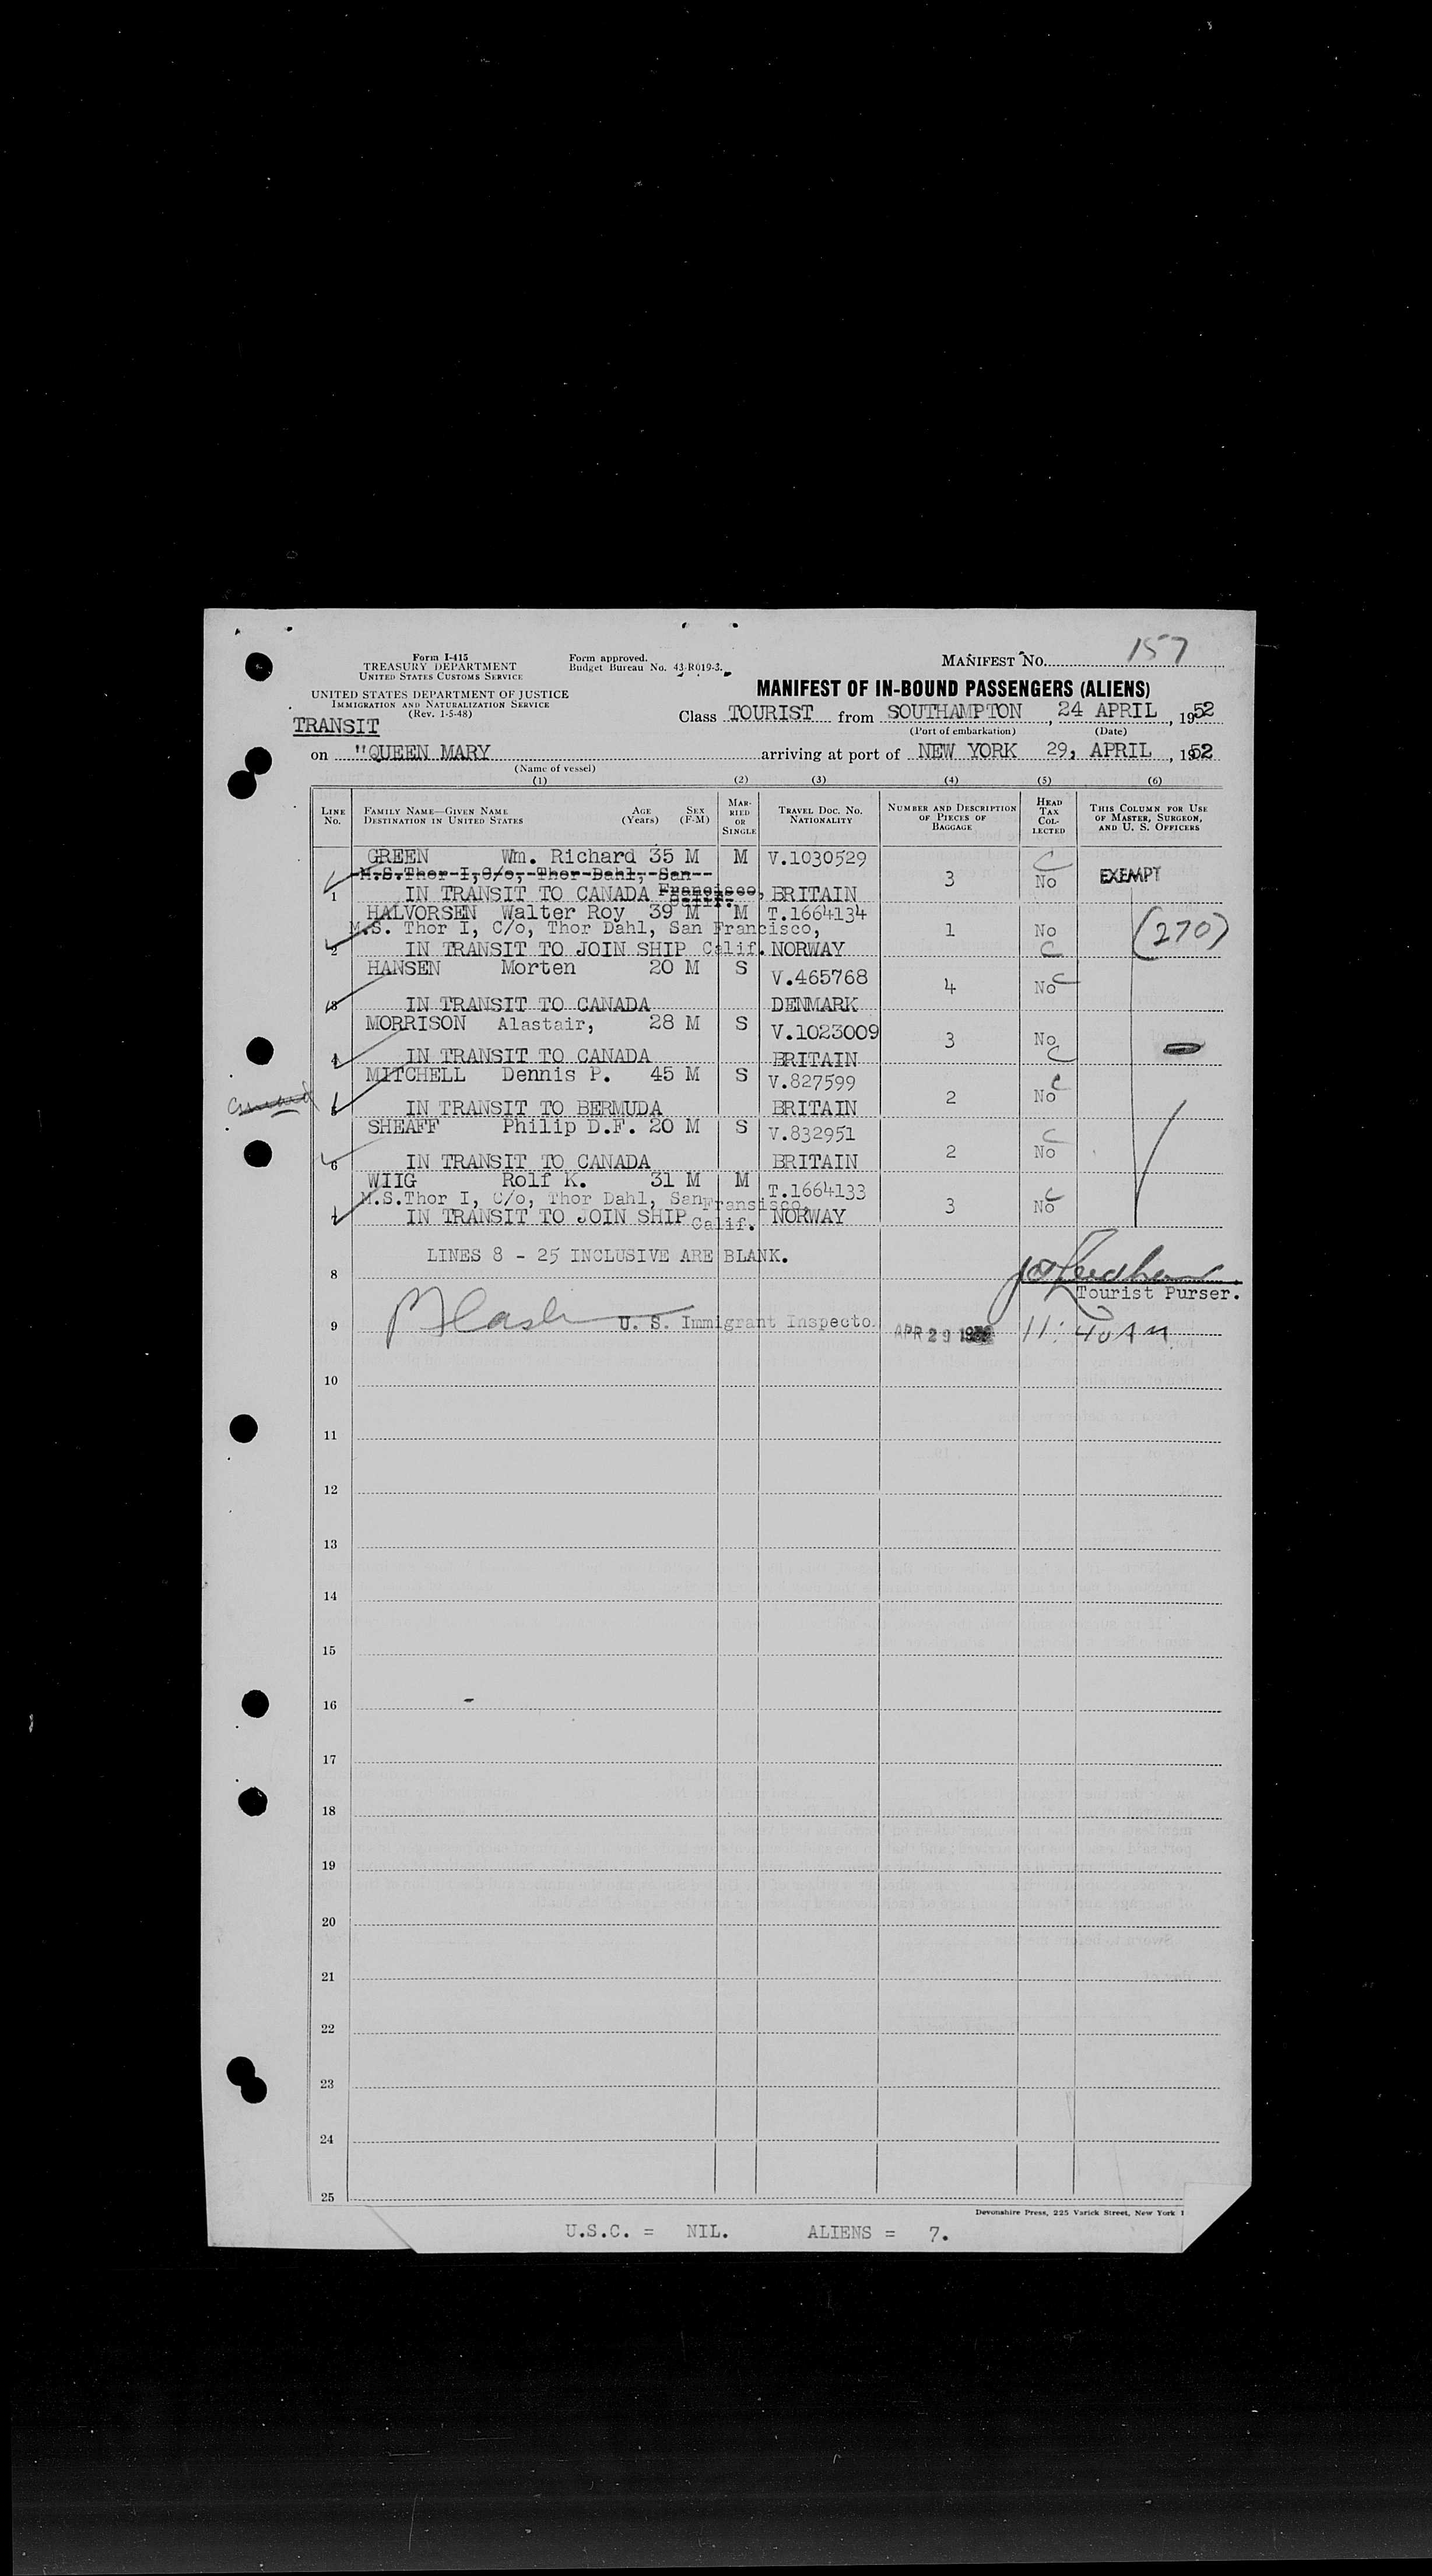 157
Form I-415
TREASURY DEPARTMENT
UNITED STATES CUSTOMS SERVICE
Form approved.
Budget Bureau No. 43-R019-3.
MANIFEST NO.
UNITED STATES DEPARTMENT OF JUSTICE
IMMIGRATION AND NATURALIZATION SERVICE
(Rev. 1-5-48)
MANIFEST OF IN-BOUND PASSENGERS (ALIENS)
TRANSIT
Class TOURIST from SOUTHAMPTON, 24 APRIL, 1952
(Port of embarkation) (Date)
on "QUEEN MARY arriving at port of NEW YORK 29, APRIL, 1952
(Name of vessel)
(1) (2) (3) (4) (5) (6)
LINE No. FAMILY NAME—GIVEN NAME DESTINATION IN UNITED STATES AGE (Years) SEX (F-M) MARRIED OR SINGLE TRAVEL DOC. NO. NATIONALITY NUMBER AND DESCRIPTION OF PIECES OF BAGGAGE HEAD TAX COLLECTED THIS COLUMN FOR USE OF MASTER, SURGEON, AND U. S. OFFICERS
GREEN Wm. Richard 35 M M V.1030529 C
M.S.Thor I,C/o, Thor Dahl, San Francisco, Calif. 3 No EXEMPT
1 IN TRANSIT TO CANADA BRITAIN
HALVORSEN Walter Roy 39 M M T.1664134
M.S. Thor I, C/o, Thor Dahl, San Francisco, 1 No (270)
2 IN TRANSIT TO JOIN SHIP Calif. NORWAY C
HANSEN Morten 20 M S V.465768
4 No C
3 IN TRANSIT TO CANADA DENMARK
MORRISON Alastair, 28 M S V.1023009
3 No C
4 IN TRANSIT TO CANADA BRITAIN
MITCHELL Dennis P. 45 M S V.827599
2 No C
IN TRANSIT TO BERMUDA BRITAIN
SHEAFF Philip D.F. 20 M S V.832951 C
2 No
6 IN TRANSIT TO CANADA BRITAIN
WIIG Rolf K. 31 M M T.1664133
M.S.Thor I, C/o, Thor Dahl, San Fransisco, 3 No C
IN TRANSIT TO JOIN SHIP Calif. NORWAY
LINES 8 - 25 INCLUSIVE ARE BLANK.
8
Tourist Purser.
9 U. S. Immigrant Inspecto. APR 29 1952 11:40 AM
10
11
12
13
14
15
16
17
18
19
20
21
22
23
24
25
Devonshire Press, 225 Varick Street, New York 1
U.S.C. = NIL. ALIENS = 7.